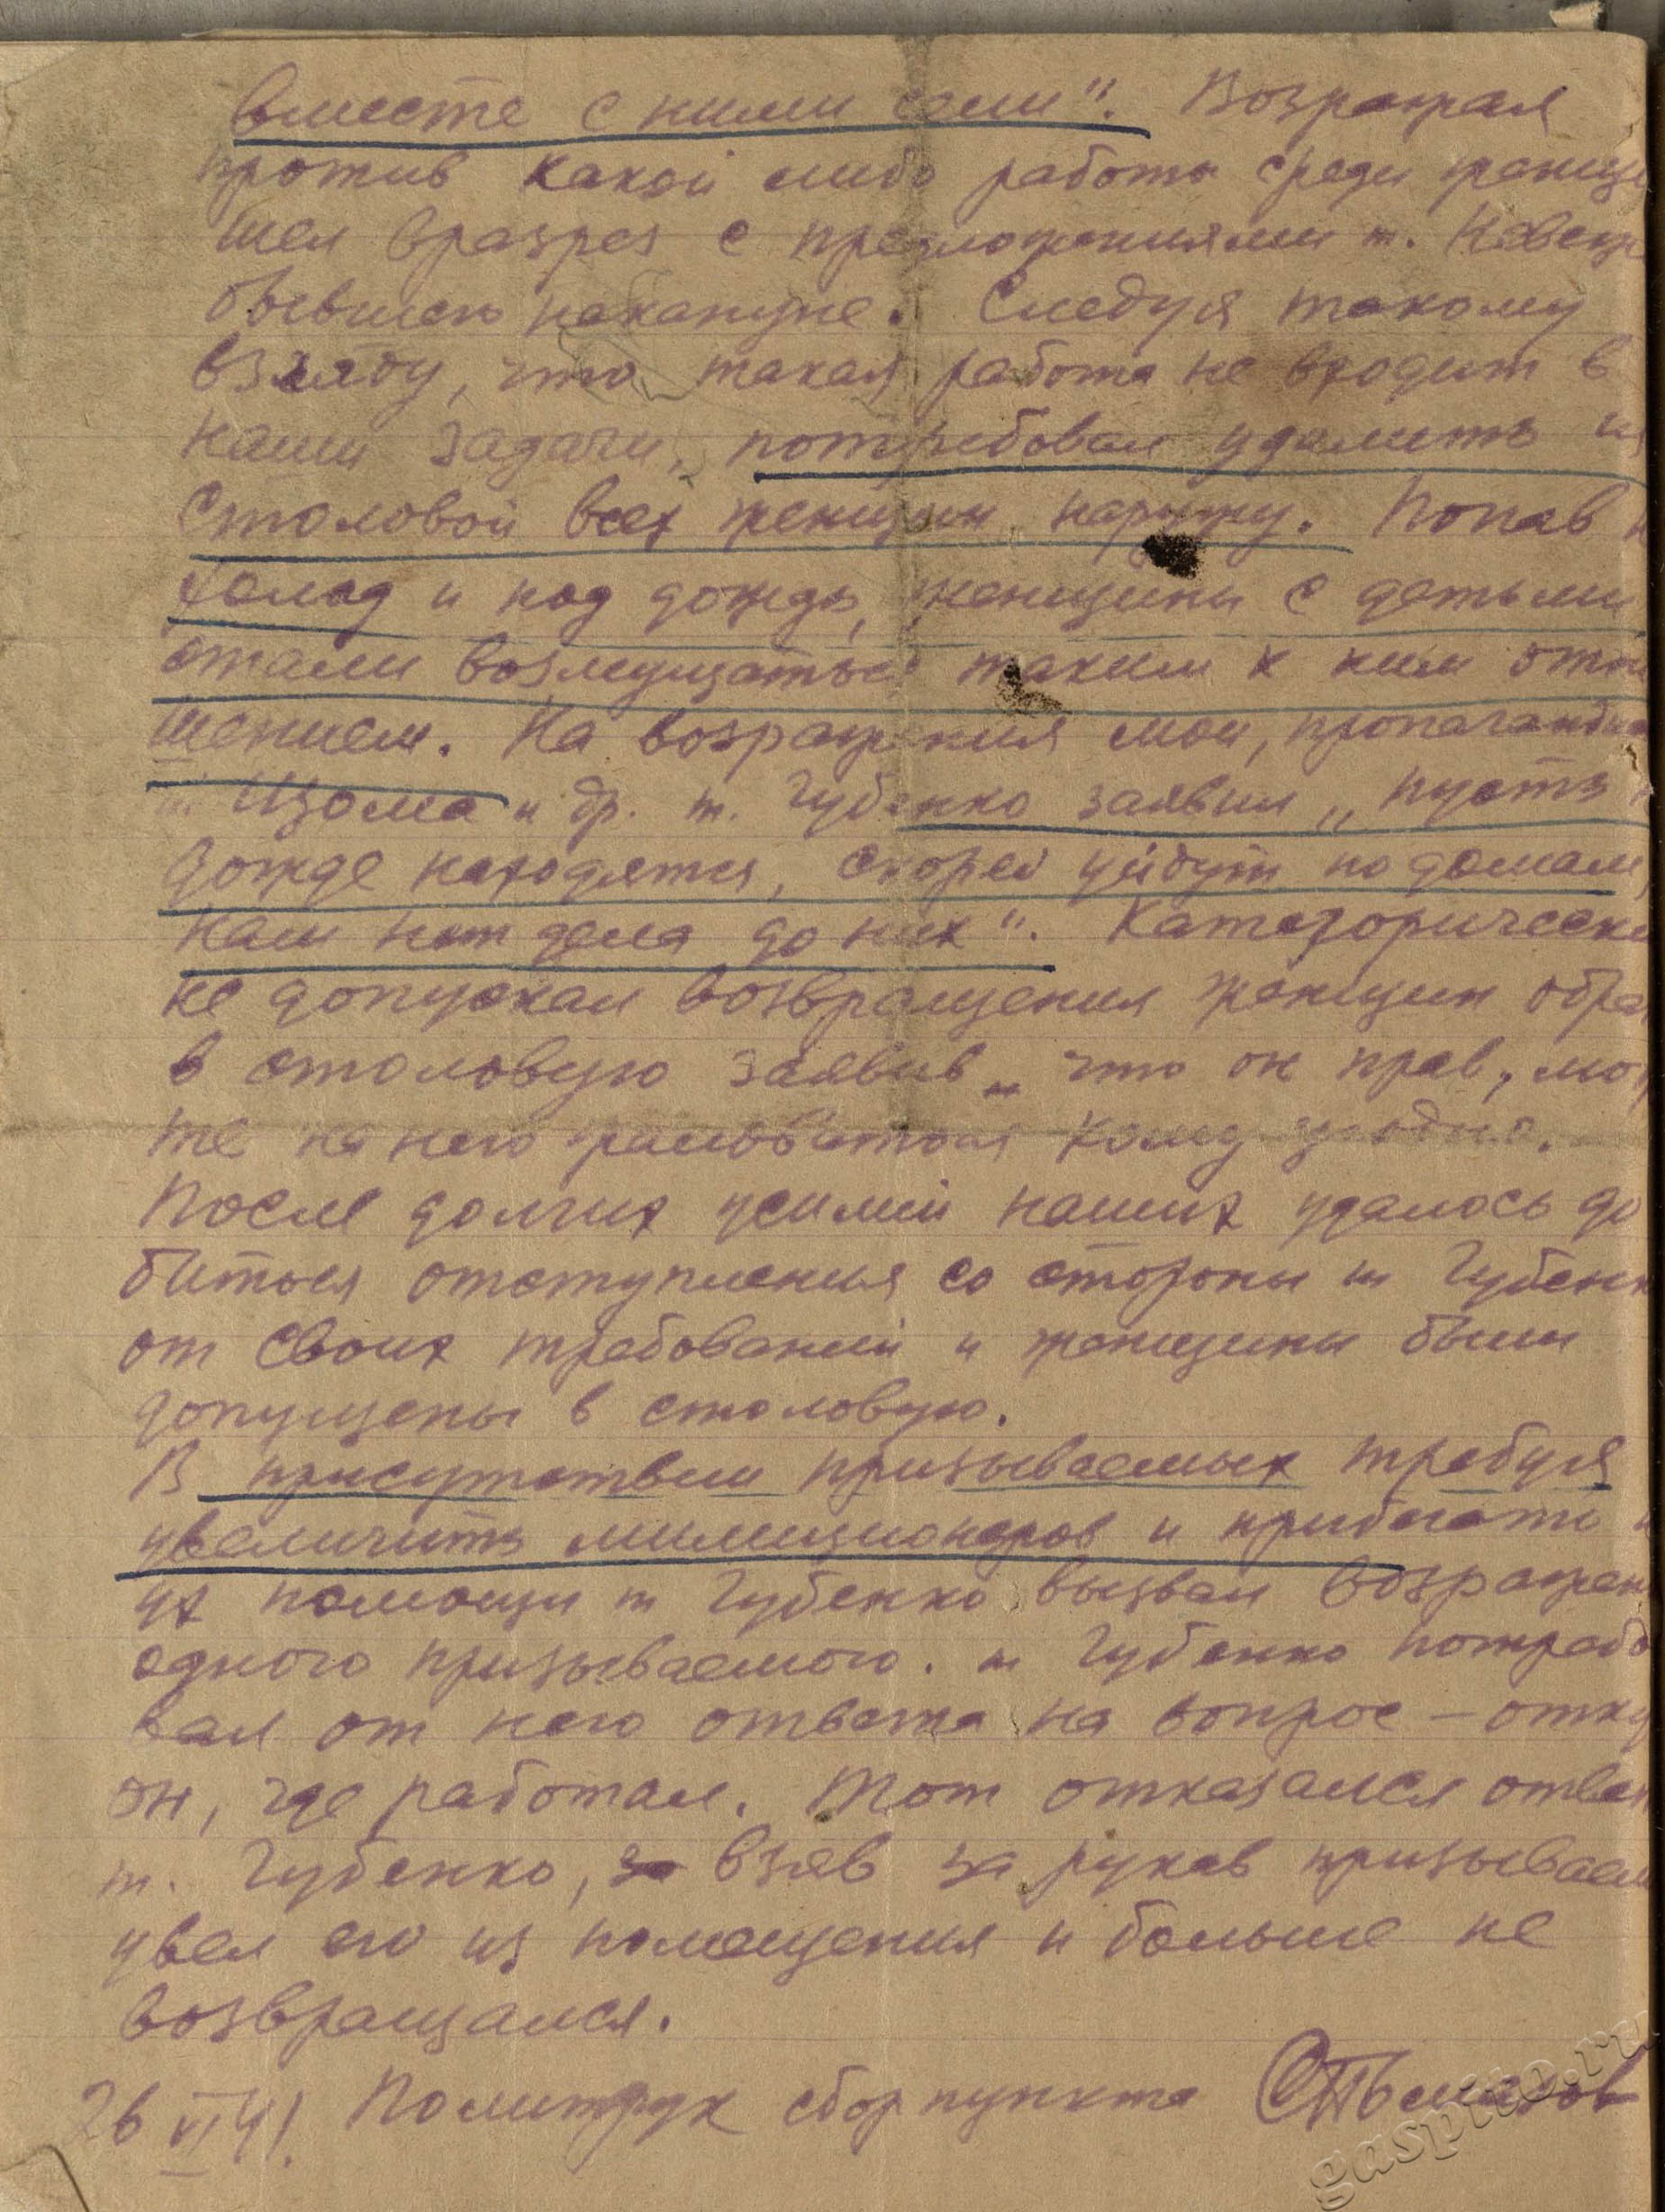 вместе с ними сели". Возражая
против какой либо работы среди женщи
шел вразрез с предложениями т.
бывшего накануне. Следуя такому
взгляду, что такая работа не входит в
наши задачи, потребовал удалить из
столовой всех женщин наружу. Попав н
холод и под дождь, женщины с детьми
стали возмущаться таким к ним отно
шением. На возражения мои, пропагандис
т. Изома и др. т. Губенко заявил „пусть н
дожде находятся, скорей уйдут по домам,
нам нет дела до них". Категорически
не допускал возвращения женщин обра
в столовую заявив „ что он прав, мож
те на него жаловаться кому угодно.
После долгих усилий наших удалось до
биться отступления со стороны т Губенк
от своих требований и женщины были
допущены в столовую.
В присутствии призываемых требуя
увеличить милиционеров и прибегать к
их помощи т Губенко вызвал возражен
одного призываемого. т Губенко потребо
вал от него ответа на вопрос – отку
он, где работал. Тот отказался отвеч
т. Губенко, за взяв за рукав призываем
увел его из помещения и больше не
возвращался.
26 VI 41. Политрук сборпункта
gaspito.ru